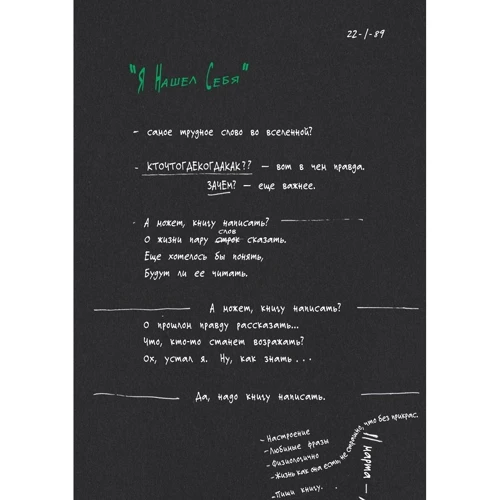 22-1-89
"Я НАШЕЛ СЕБЯ"
- самое трудное слово во вселенной?
- КТОЧТОГДЕКОГДАКАК?? — вот в чем правда.
ЗАЧЕМ? — еще важнее.
- А может, книгу написать?
слов
О жизни пару строк сказать.
Еще хотелось бы понять,
Будут ли ее читать.
А может, книгу написать?
О прошлом правду рассказать...
Что, кто-то станет возражать?
Ох, устал я. Ну, как знать...
Да, надо книгу написать.
- Настроение
- Любимые фразы
- Физиологично
- Жизнь как она есть, не страшно, что без прикрас.
- Пиши книгу.
11 марта —